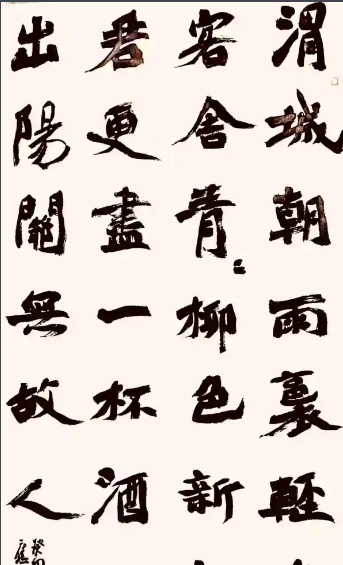 渭城朝雨裛輕
客舍青〻柳色新
君更盡一杯酒
出陽關無故人
癸卯